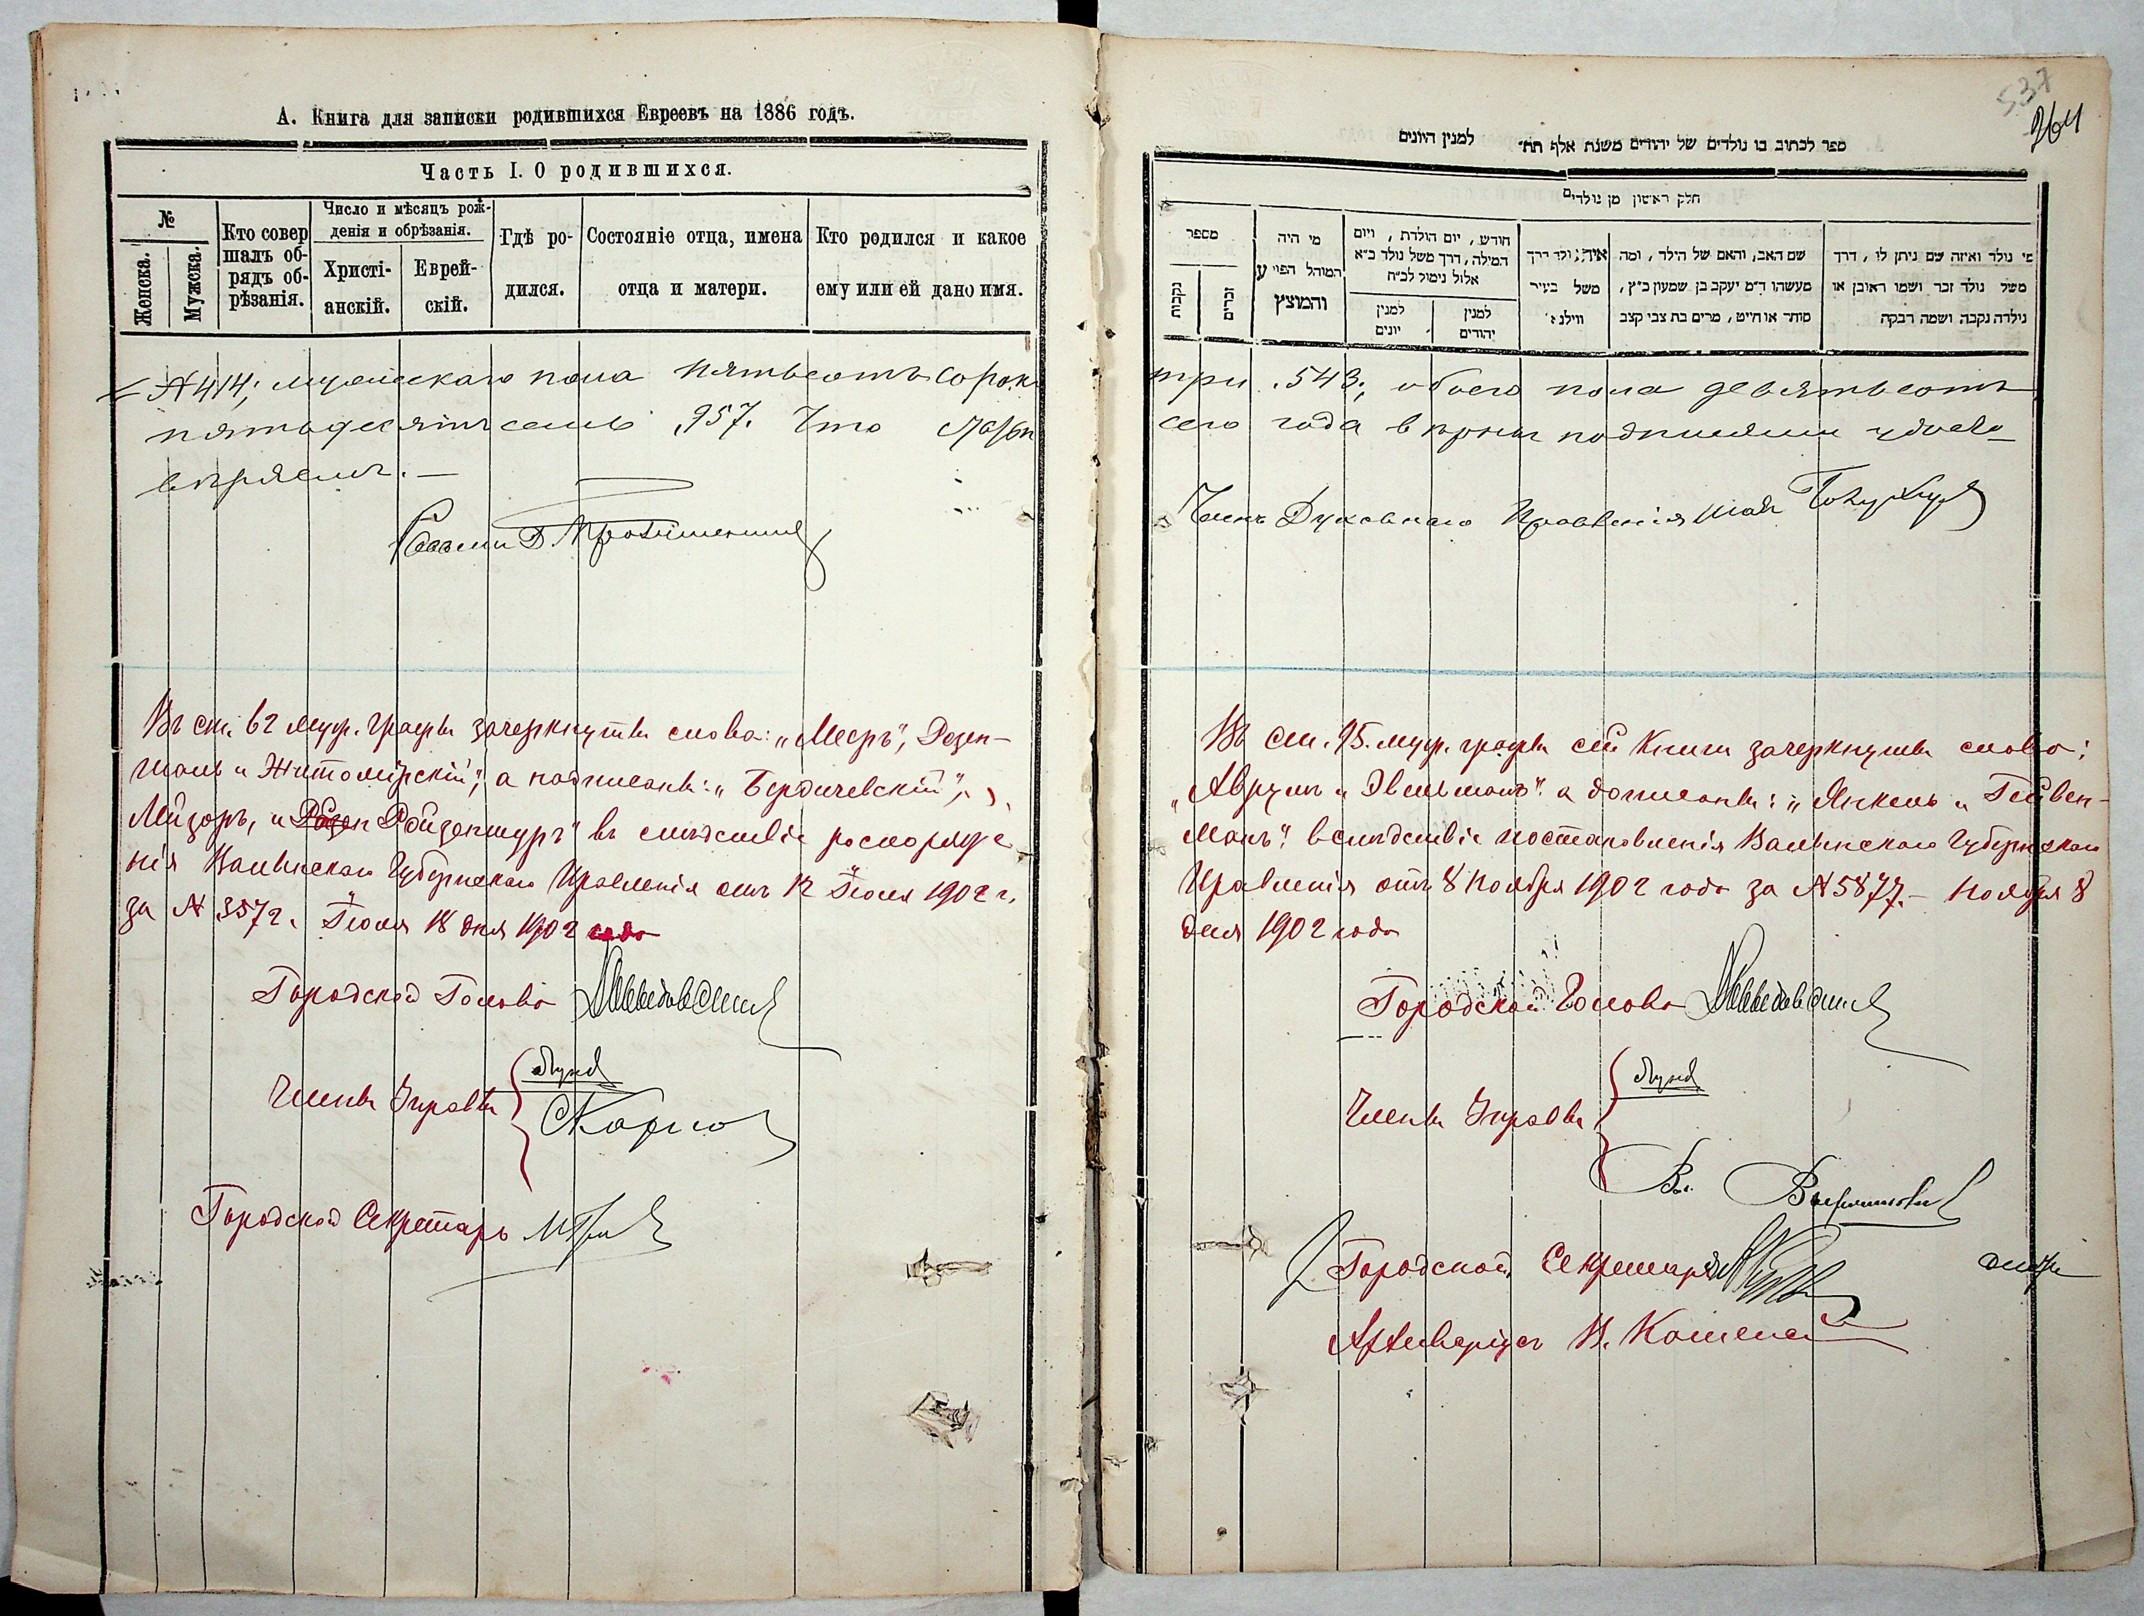 А. Книга для записки родившихся Евреевъ на 1886 годъ.
Часть I. О родившихся.
№
Женска.
Мужска.
Кто совер
шалъ об-
рядъ об-
рѣзанія.
Число и мѣсяцъ рож-
денія и обрѣзанія.
Христі-
анскій.
Еврей-
скій.
Гдѣ ро-
дился.
Состояніе отца, имена
отца и матери.
Кто родился и какое
ему или ей дано имя.
№ 414; мужескаго пола пятьсотъ сорокъ
пятьдесятъ семь 957. Что
вѣряемъ. —
Въ ст. 62 муж. графы зачеркнуты слова: „Мееръ",
и Житомірскій", а надписаны: „Бердичевскій",
и Ройзеншуръ" въ слѣдствіе распоряже
нія Волынскаго Губернскаго Правленія отъ 12 Іюля 1902 г.
за № 3572. Іюля 18 дня 1902 года
Городской Голова
Члены Управы
Городской Секретарь
537
264
ספר לכתוב בו נולדים של יהודים משנת אלף תת״ למנין היונים
חלק ראשון מן נולדים
מספר
נקבות
זכרים
מי היה
המוהל הפוי ע
והמוצץ
חודש, יום הולדת, ויום
המילה, דרך משל נולד כ״א
אלול נימול לכ״ח
למנין
יונים
למנין
יהודים
איה נולד דרך
משל בעיר
ווילנא
שם האב, והאם של הילד, ומה
מעשהו ד״מ יעקב בן שמעון כ״ץ,
סוחר או חייט, מרים בת צבי קצב
מי נולד ואיזה שם ניתן לו, דרך
משל נולד זכר ושמו ראובן או
נילדה נקבה ושמה רבקה
три 543; обоего пола девятьсотъ
сего года въ томъ подписями удосто-
Членъ Духовнаго Правленія
Въ ст. 95. муж. графы сей Книги зачеркнуты слова:
„Аврумъ и а дописаны: „Янкель и Гейвен-
манъ". вслѣдствіе постановленія Волынскаго Губернскаго
Правленія отъ 8 Ноября 1902 года за № 5877. – Ноября 8
дня 1902 года
Городской Голова
Члены Управы
Городской Секретарь
Архиваріусъ